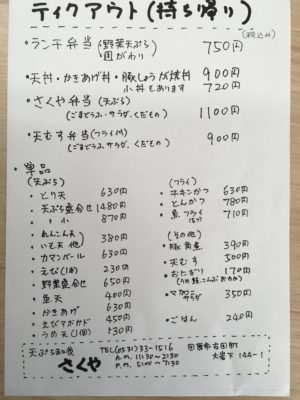 テイクアウト(持ち帰り)
(税込み)
・ランチ弁当(野菜天ぷら 750円
日がわり)
・天丼・かきあげ丼・豚しょうが焼丼 900円
小丼もあります 720
・さくや弁当(天ぷら) 1100円
(ごまどうふ・サラダ、くだもの)
・天むす弁当(フライ付) 900円
(ごまどうふ、サラダ、くだもの)
・単品
(天ぷら)
・とり天 630円
・天ぷら盛合せ 1480円
・〃 小 870円
・れんこん天 380円
いも天 他
・カマンベール 630円
・えび(1本) 230円
・野菜盛合せ 650円
・魚天 400円
・かきあげ 630円
・えびアボカド 450円
・うめ天(1個) 130円
(フライ)
・チキンかつ 630円
・とんかつ 780円
・魚フライ 710円
(その他)
・豚角煮 390円
・天むす 500円
・おにぎり 170円
(うめ、鮭、こんぶ、おかか)
・マカロニサラダ 350円
・ごはん 240円
天ぷら和食 さくや
TEL(0531)33-1516
A.M. 11:30~2:30
P.M. 5:00~7:30
田原市古田町
大岩下144-1